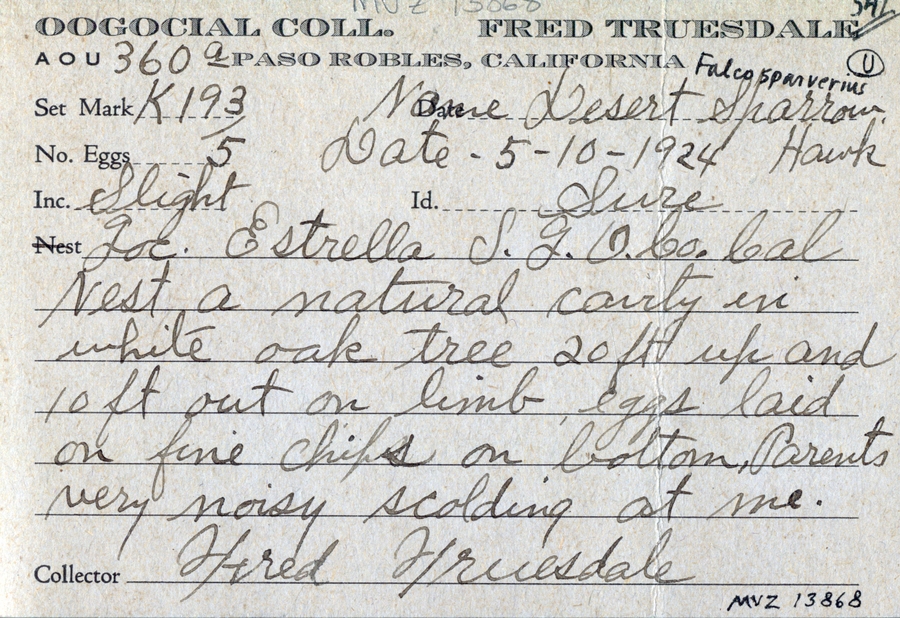 MVZ 13868
OOGOCIAL COLL. FRED TRUESDALE
A O U 360a PASO ROBLES, CALIFORNIA Falco sparverius U
Set Mark K193 Name Desert Sparrow
No. Eggs 5 Date - 5-10-1924 Hawk
Inc. Slight Id. Sure
Nest Loc. Estrella S. L. O. Co. Cal
Nest a natural cavity in
white oak tree 20 ft up and
10 ft out on limb, eggs laid
on fine chips on bottom, Parents
very noisy scolding at me.
Collector Fred Truesdale
MVZ 13868